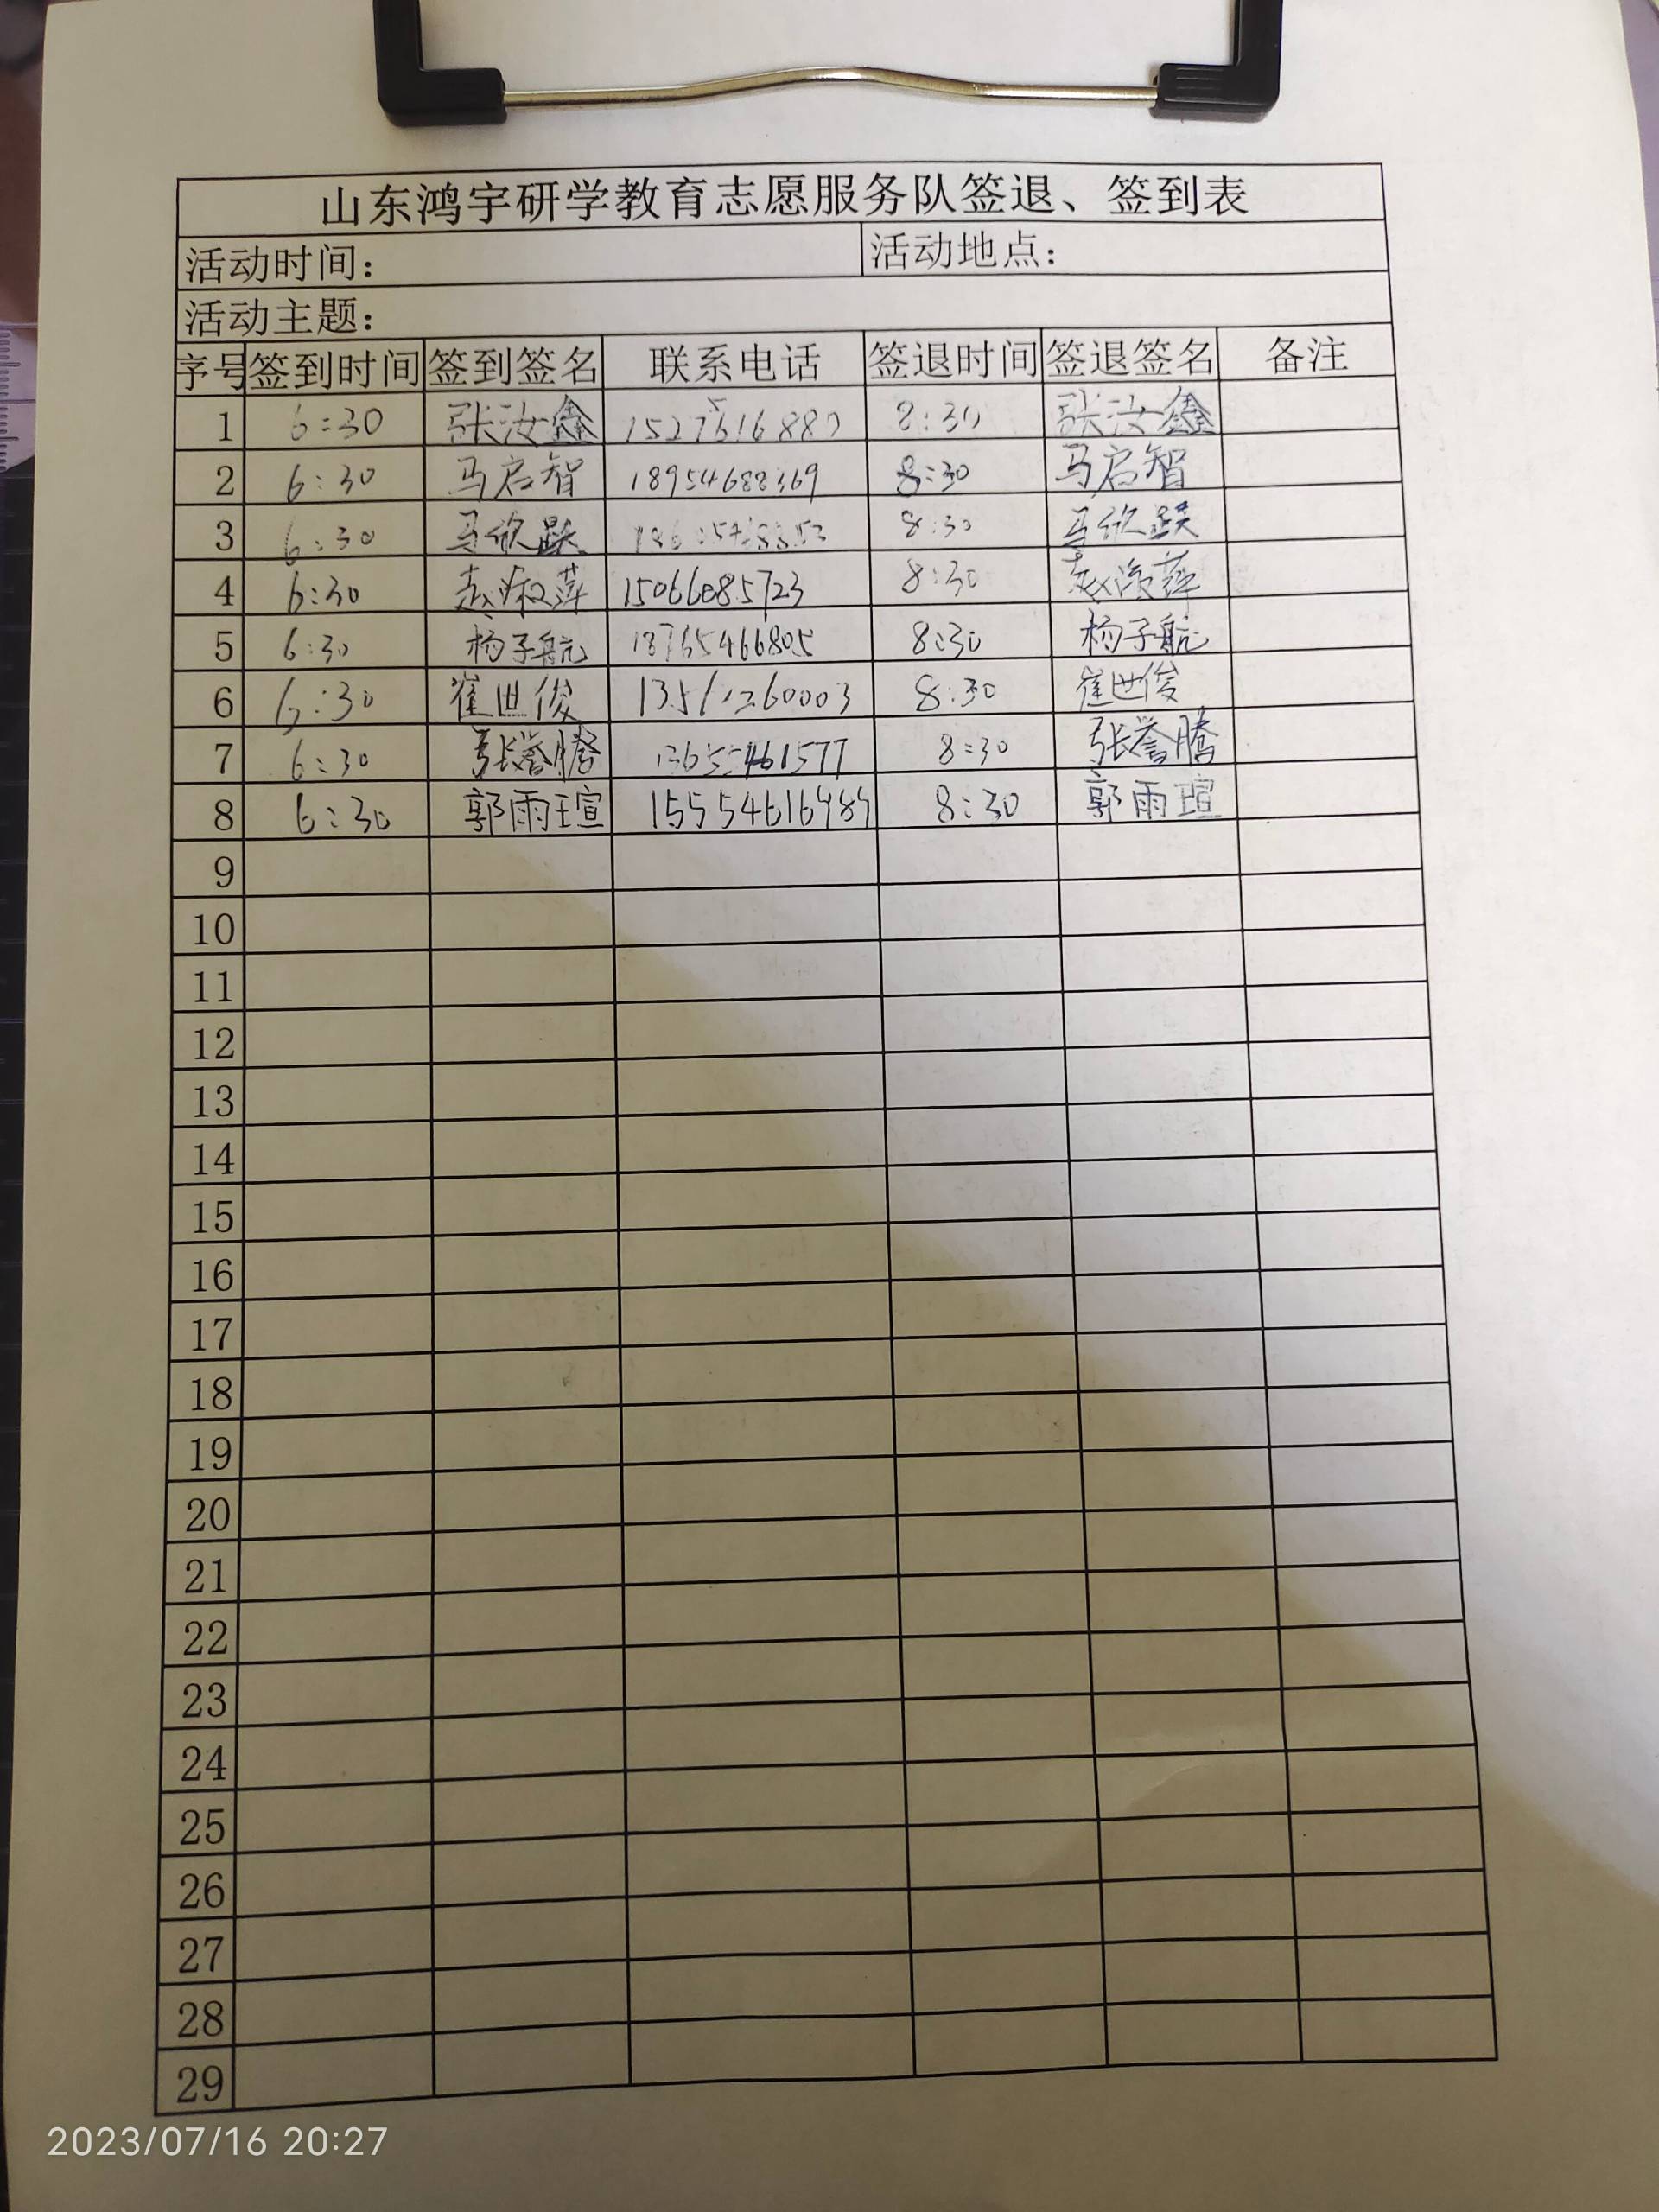 山东鸿宇研学教育志愿服务队签退、签到表
活动时间： 活动地点：
活动主题：
序号 签到时间 签到签名 联系电话 签退时间 签退签名 备注
1 6:30 张汝鑫 8:30 张汝鑫
2 6:30 马启智 18954688369 8:30 马启智
3 6:30 马欣 8:30 马欣
4 6:30 赵淑萍 15066085723 8:30 赵淑萍
5 6:30 杨子航 18765466805 8:30 杨子航
6 6:30 崔世俊 13561260003 8:30 崔世俊
7 6:30 张誉腾 13655461577 8:30 张誉腾
8 6:30 郭雨瑄 8:30 郭雨瑄
9
10
11
12
13
14
15
16
17
18
19
20
21
22
23
24
25
26
27
28
29
2023/07/16 20:27